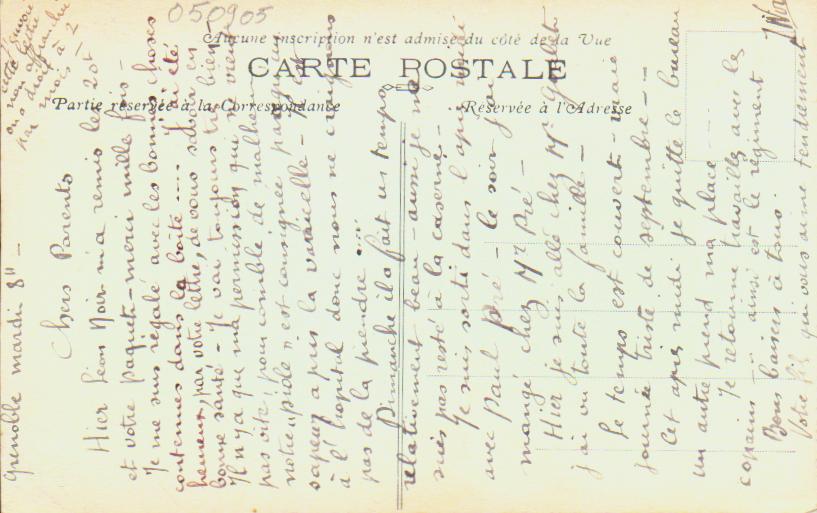 050905
Aucune inscription n'est admise du côté de la Vue
CARTE POSTALE
Partie réservée à la Correspondance
Réservée à l'Adresse
Grenoble mardi 8h -
Chers Parents
Hier Léon Noir m'a remis les 20f
et votre paquet - merci mille fois -
Je me suis régalé avec les bonnes choses
contenues dans la boîte .... J'ai été
heureux par votre lettre, de vous savoir en
bonne santé - Je vai toujours très bien -
Il n'y a que ma permission qui ne vient
pas vite; pour comble de malheur
notre est consignée parce qu'un
sapeur a pris la varicelle - Il est
à l'hôpital donc nous ne craignons
pas de la prendre ...
Dimanche il a fait un temps
relativement beau - aussi je ne
suis pas resté à la caserne -
Je suis sorti dans l'après midi
avec Paul Pré - le soir j'ai
mangé chez Mr Pré -
Hier je suis allé chez Mr
j'ai vu toute la famille -
Le temps est couvert - vraie
journée triste de septembre - -
Cet après midi je quitte le bureau
un autre prend ma place - -
Je retourne travailler avec les
copains - ainsi est le régiment
Bons baisers à tous
Votre fils qui vous aime tendrement